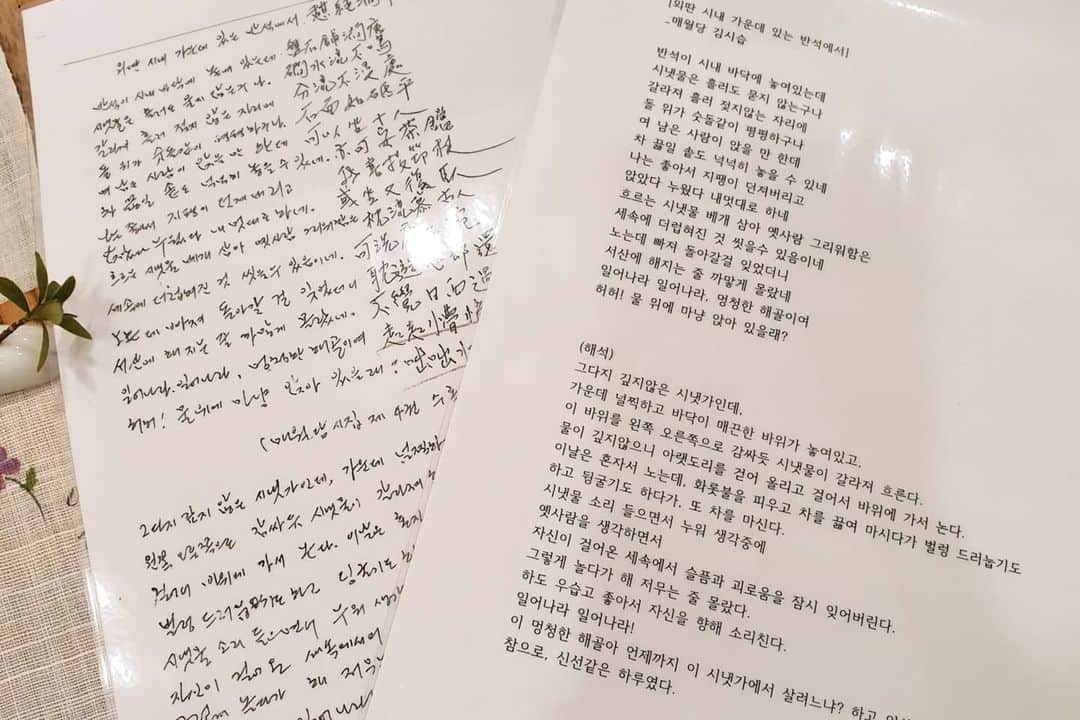 외딴 시내 가운데 있는 반석에서
반석이 시내 바닥에 놓여 있는데
시냇물은 흘러도 묻지 않는구나
갈라져 흘러 젖지 않은 자리에
돌 위가 숫돌같이 평평하구나
여남은 사람이 앉을 만 한데
차 끓일 솥도 넉넉히 놓을 수 있네
나는 좋아서 지팽이 던져 버리고
앉았다 누웠다 내 멋대로 하네
흐르는 시냇물 베개 삼아 옛사람 그리워함은
세속에 더럽혀진 것 씻을 수 있음이네
노는데 빠져 돌아갈 걸 잊었더니
서산에 해지는 줄 까맣게 몰랐네
일어나라 일어나라, 멍청한 해골이여
허허! 물위에 마냥 앉아 있을래?
盤石鋪澗底
澗水流不
分流不浸處
石面如砥平
可以坐十人
亦可安茶鐺
我喜投筇
或坐又復
枕流慕古人
可洗
不覺日西
(매월당 시집 제 4권
그다지 깊지 않은 시냇가인데, 가운데 널찍하
왼쪽 오른쪽으로 감싸듯 시냇물이 갈라져
걸어서 바위에 가서 논다. 이날은 혼자
벌렁 드러눕기도 하고 뒹굴기도
시냇물 소리 들으면서 누워 생각
자신이 걸어온 세속에서
놀다가 해 저무
|외딴 시내 가운데 있는 반석에서|
-매월당 김시습
반석이 시내 바닥에 놓여있는데
시냇물은 흘러도 묻지 않는구나
갈라져 흘러 젖지않는 자리에
돌 위가 숫돌같이 평평하구나
여 남은 사람이 앉을 만 한데
차 끓일 솥도 넉넉히 놓을 수 있네
나는 좋아서 지팽이 던져버리고
앉았다 누웠다 내멋대로 하네
흐르는 시냇물 베개 삼아 옛사람 그리워함은
세속에 더럽혀진 것 씻을수 있음이네
노는데 빠져 돌아갈걸 잊었더니
서산에 해지는 줄 까맣게 몰랐네
일어나라 일어나라, 멍청한 해골이여
허허! 물 위에 마냥 앉아 있을래?
(해석)
그다지 깊지않은 시냇가인데,
가운데 널찍하고 바닥이 매끈한 바위가 놓여있고.
이 바위를 왼쪽 오른쪽으로 감싸듯 시냇물이 갈라져 흐른다.
물이 깊지않으니 아랫도리를 걷어 올리고 걸어서 바위에 가서 논다.
이날은 혼자서 노는데, 화롯불을 피우고 차를 끓여 마시다가 벌렁 드러눕기도
하고 뒹굴기도 하다가. 또 차를 마신다.
시냇물 소리 들으면서 누워 생각중에
옛사람을 생각하면서
자신이 걸어온 세속에서 슬픔과 괴로움을 잠시 잊어버린다.
그렇게 놀다가 해 저무는 줄 몰랐다.
하도 우습고 좋아서 자신을 향해 소리친다.
일어나라 일어나라!
이 멍청한 해골아 언제까지 이 시냇가에서 살려느냐? 하고
참으로, 신선같은 하루였다.